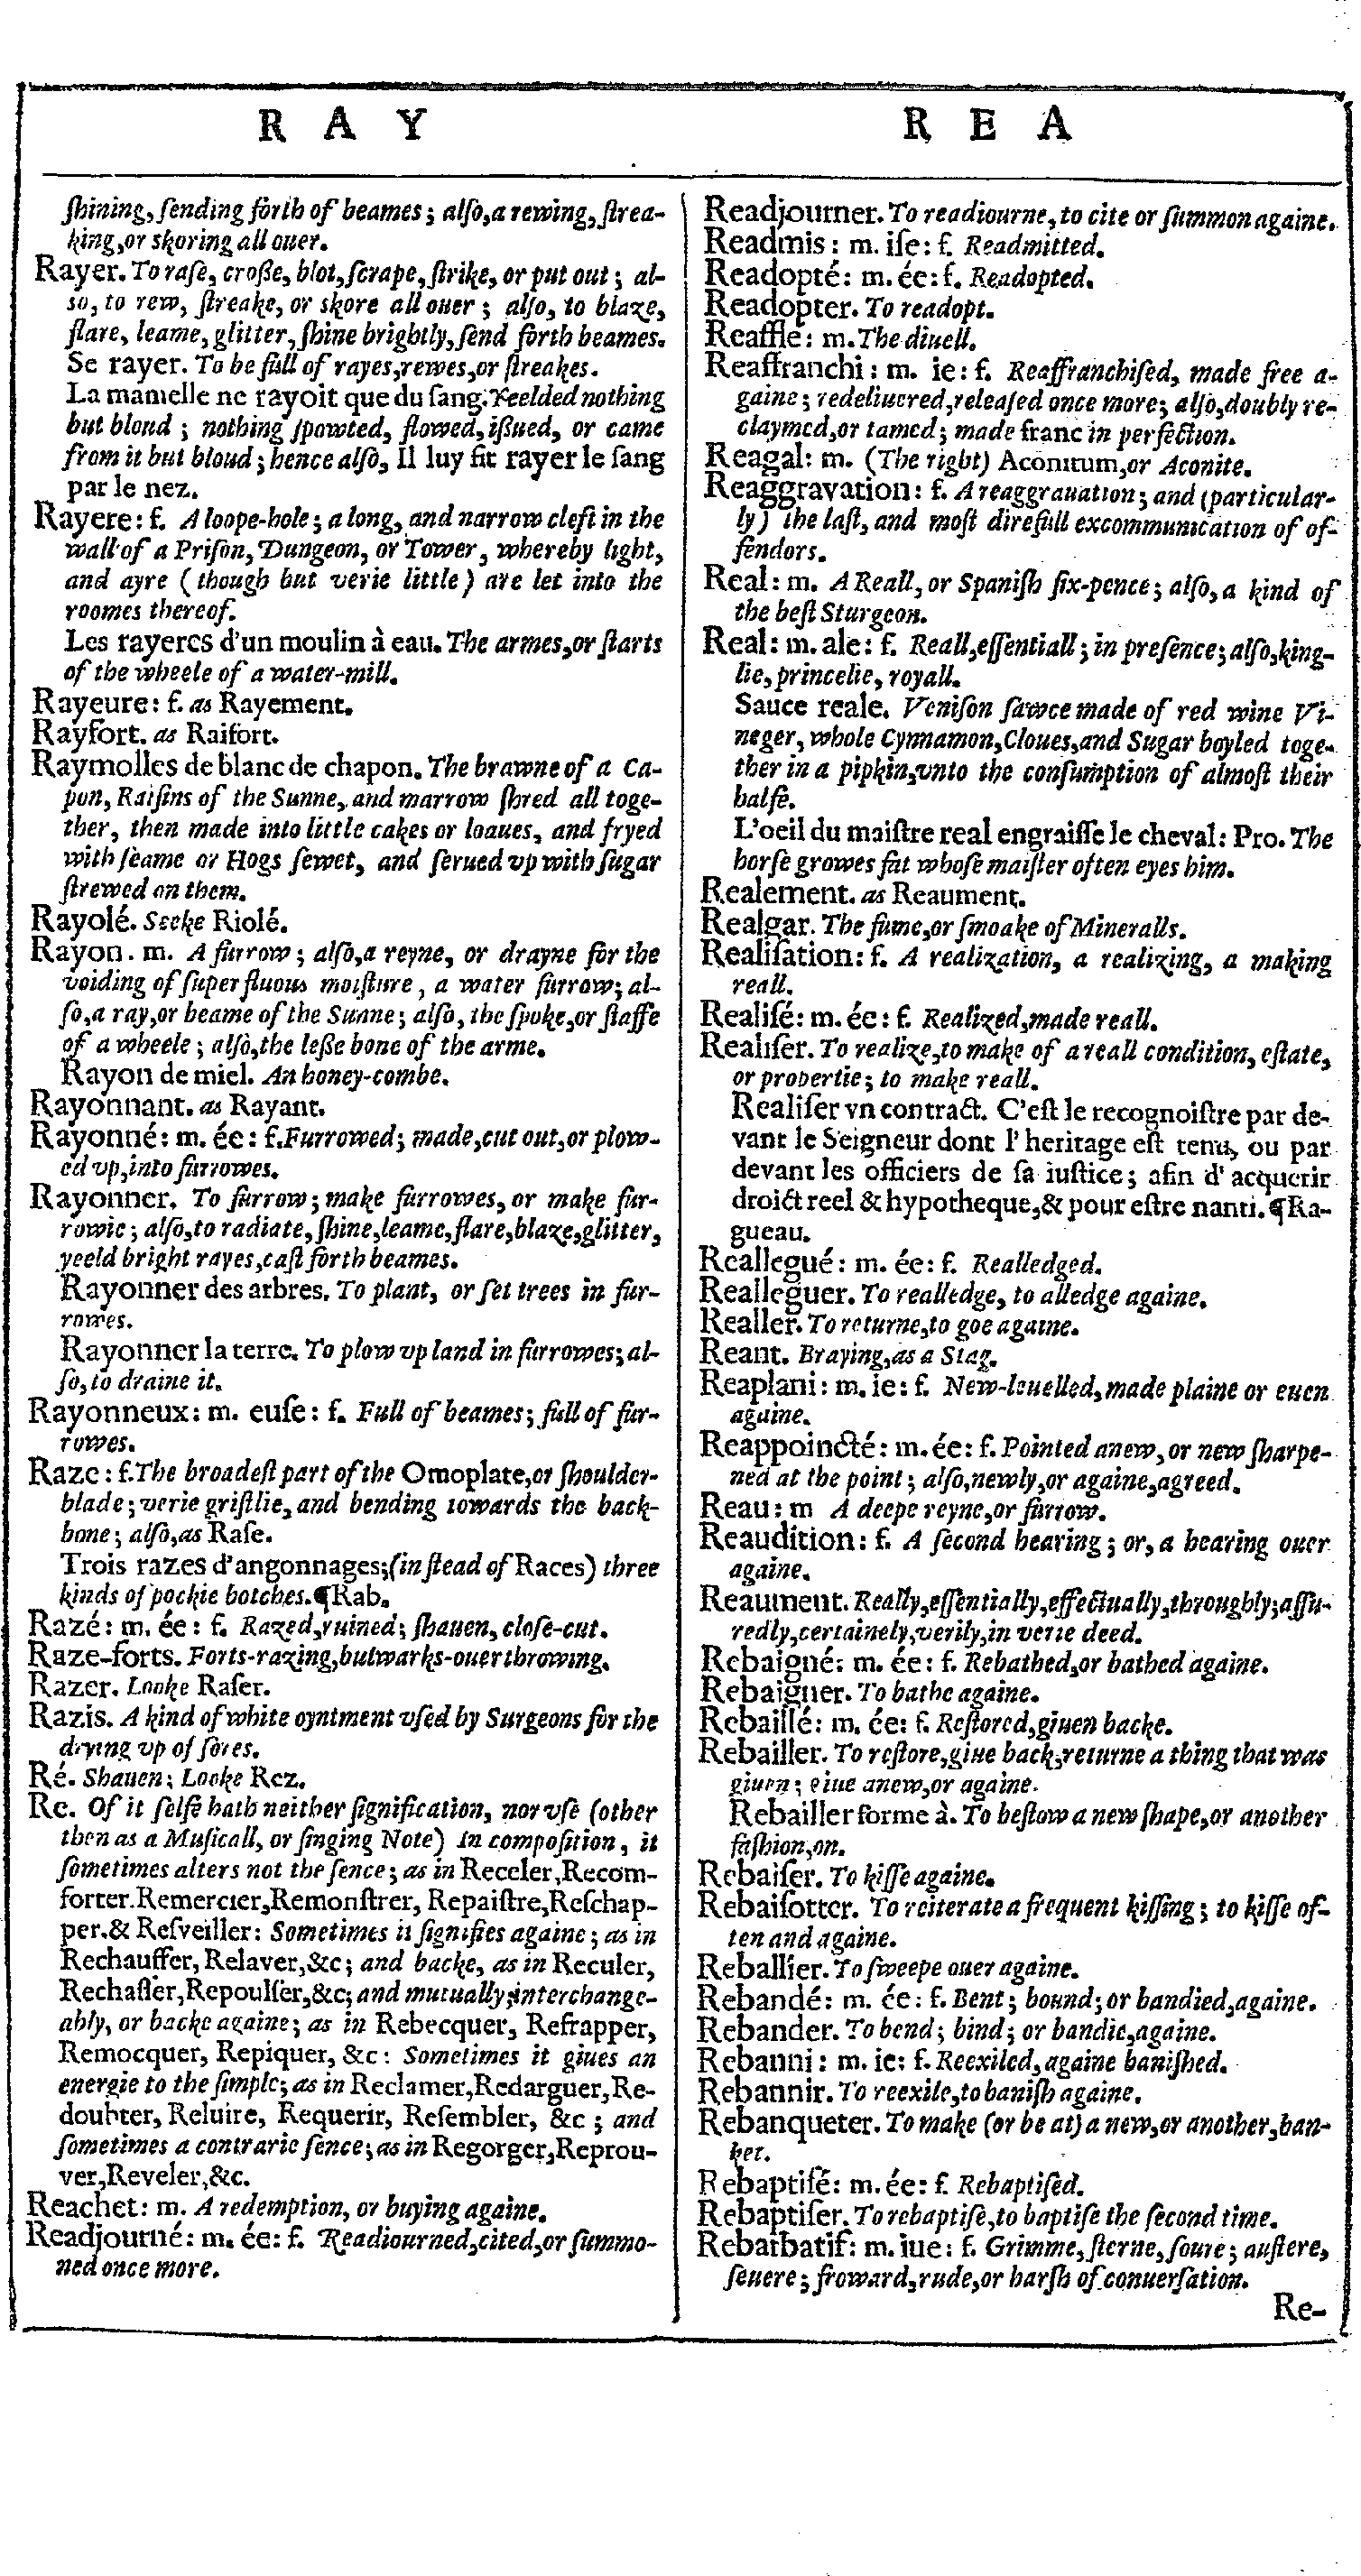 R A Y
ſhining, ſending forth of beames; alſo, a rewing, ſtrea-
king, or skoring all ouer.
Rayer. To raſe, croſſe, blot, ſcrape, ſtrike, or put out; al-
so, to rew, ſtreake, or skore all ouer; alſo, to blaze,
flare, leame, glitter, ſhine brightly, ſend forth beames.
Se rayer. To be full of rayes, rewes, or ſtreakes.
La mamelle ne rayoit que du ſang. Yeelded nothing
but bloud; nothing ſpowted, flowed, iſſued, or came
from it but bloud; hence alſo, Il luy fit rayer le ſang
par le nez.
Rayere: f. A loope-hole; a long, and narrow cleft in the
wall of a Priſon, Dungeon, or Tower, whereby light,
and ayre (though but verie little) are let into the
roomes thereof.
Les rayeres d'un moulin à eau. The armes, or ſtarts
of the wheele of a water-mill.
Rayeure: f. as Rayement.
Rayfort. as Raifort.
Raymolles de blanc de chapon. The brawne of a Ca-
pon, Raiſins of the Sunne, and marrow ſhred all toge-
ther, then made into little cakes or loaues, and fryed
with ſeame or Hogs ſewet, and ſerued vp with ſugar
ſtrewed on them.
Rayolé. Seeke Riolé.
Rayon. m. A furrow; alſo, a reyne, or drayne for the
voiding of ſuperfluous moiſture, a water furrow; al-
ſo, a ray, or beame of the Sunne; alſo, the ſpoke, or ſtaffe
of a wheele; alſo, the leſſe bone of the arme.
Rayon de miel. An honey-combe.
Rayonnant. as Rayant.
Rayonné: m. ée: f. Furrowed; made, cut out, or plow-
ed vp, into furrowes.
Rayonner. To furrow; make furrowes, or make fur-
rowie; alſo, to radiate, ſhine, leame, flare, blaze, glitter,
yeeld bright rayes, caſt forth beames.
Rayonner des arbres. To plant, or ſet trees in fur-
rowes.
Rayonner la terre. To plow vp land in furrowes; al-
ſo, to draine it.
Rayonneux: m. euſe: f. Full of beames; full of fur-
rowes.
Raze: f. The broadeſt part of the Omoplate, or ſhoulder-
blade; verie griſtlie, and bending towards the back-
bone; alſo, as Raſe.
Trois razes d'angonnages; (in ſtead of Races) three
kinds of pockie botches. ¶Rab.
Razé: m. ée: f. Razed, ruined; ſhauen, cloſe-cut.
Raze-forts. Forts-razing, bulwarks-ouerthrowing.
Razer. Looke Raſer.
Razis. A kind of white oyntment vſed by Surgeons for the
drying vp of ſores.
Ré. Shauen; Looke Rez.
Re. Of it ſelfe hath neither ſignification, nor vſe (other
then as a Muſicall, or ſinging Note) In compoſition, it
ſometimes alters not the ſence; as in Receler, Recom-
forter. Remercier, Remonſtrer, Repaiſtre, Reſchap-
per. & Reſveiller: Sometimes it ſignifies againe; as in
Rechauffer, Relaver, &c; and backe, as in Reculer,
Rechaſſer, Repoulſer, &c; and mutually; interchange-
ably, or backe againe; as in Rebecquer, Refrapper,
Remocquer, Repiquer, &c: Sometimes it giues an
energie to the ſimple; as in Reclamer, Redarguer, Re-
doubter, Reluire, Requerir, Reſembler, &c; and
ſometimes a contrarie ſence; as in Regorger, Reprou-
ver, Reveler, &c.
Reachet: m. A redemption, or buying againe.
Readjourné: m. ée: f. Readiourned, cited, or ſummo-
ned once more.
R E A
Readjourner. To readiourne, to cite or ſummon againe.
Readmis: m. iſe: f. Readmitted.
Readopté: m. ée: f. Readopted.
Readopter. To readopt.
Reaffle: m. The diuell.
Reaffranchi: m. ie: f. Reaffranchiſed, made free a-
gaine; redeliuered, releaſed once more; alſo, doubly re-
claymed, or tamed; made franc in perfection.
Reagal: m. (The right) Aconitum, or Aconite.
Reaggravation: f. A reaggrauation; and (particular-
ly) the laſt, and moſt direfull excommunication of of-
fendors.
Real: m. A Reall, or Spaniſh ſix-pence; alſo, a kind of
the beſt Sturgeon.
Real: m. ale: f. Reall, eſſentiall; in preſence; alſo, king-
lie, princelie, royall.
Sauce reale. Veniſon ſawce made of red wine Vi-
neger, whole Cynnamon, Cloues, and Sugar boyled toge-
ther in a pipkin, vnto the conſumption of almoſt their
halfe.
L'oeil du maiſtre real engraiſſe le cheval: Pro. The
horſe growes fat whoſe maiſter often eyes him.
Realement. as Reaument.
Realgar. The fume, or ſmoake of Mineralls.
Realiſation: f. A realization, a realizing, a making
reall.
Realiſé: m. ée: f. Realized, made reall.
Realiſer. To realize, to make of a reall condition, eſtate,
or propertie; to make reall.
Realiſer vn contract. C'eſt le recognoiſtre par de-
vant le Seigneur dont l'heritage eſt tenu, ou par
devant les officiers de ſa iuſtice; afin d'acquerir
droict reel & hypotheque, & pour eſtre nanti. ¶Ra-
gueau.
Reallegué: m. ée: f. Realledged.
Realleguer. To realledge, to alledge againe.
Realler. To returne, to goe againe.
Reant. Braying, as a Stag.
Reaplani: m. ie: f. New-leuelled, made plaine or euen
againe.
Reappoincté: m. ée: f. Pointed anew, or new ſharpe-
ned at the point; alſo, newly, or againe, agreed.
Reau: m A deepe reyne, or furrow.
Reaudition: f. A ſecond hearing; or, a hearing ouer
againe.
Reaument. Really, eſſentially, effectually, throughly; aſſu-
redly, certainely, verily, in verie deed.
Rebaigné: m. ée: f. Rebathed, or bathed againe.
Rebaigner. To bathe againe.
Rebaillé: m. ée: f. Reſtored, giuen backe.
Rebailler. To reſtore, giue back, returne a thing that was
giuen; giue anew, or againe.
Rebailler forme à. To beſtow a new ſhape, or another
faſhion, on.
Rebaiſer. To kiſſe againe.
Rebaiſotter. To reiterate a frequent kiſſing; to kiſſe of-
ten and againe.
Reballier. To ſweepe ouer againe.
Rebandé: m. ée: f. Bent; bound; or bandied, againe.
Rebander. To bend; bind; or bandie, againe.
Rebanni: m. ie: f. Reexiled, againe baniſhed.
Rebannir. To reexile, to baniſh againe.
Rebanqueter. To make (or be at) a new, or another, ban-
ket.
Rebaptiſé: m. ée: f. Rebaptiſed.
Rebaptiſer. To rebaptiſe, to baptiſe the ſecond time.
Rebarbatif: m. iue: f. Grimme, ſterne, ſoure; auſtere,
ſeuere; froward, rude, or harſh of conuerſation.
Re-